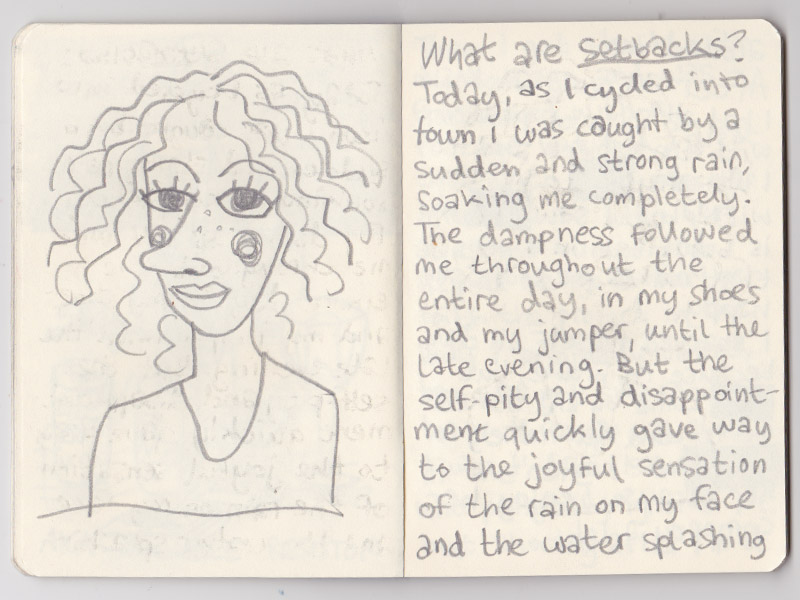 What are setbacks?
Today, as I cycled into
town I was caught by a
sudden and strong rain,
soaking me completely.
The dampness followed
me throughout the
entire day, in my shoes
and my jumper, until the
late evening. But the
self-pity and disappoint-
ment quickly gave way
to the joyful sensation
of the rain on my face
and the water splashing